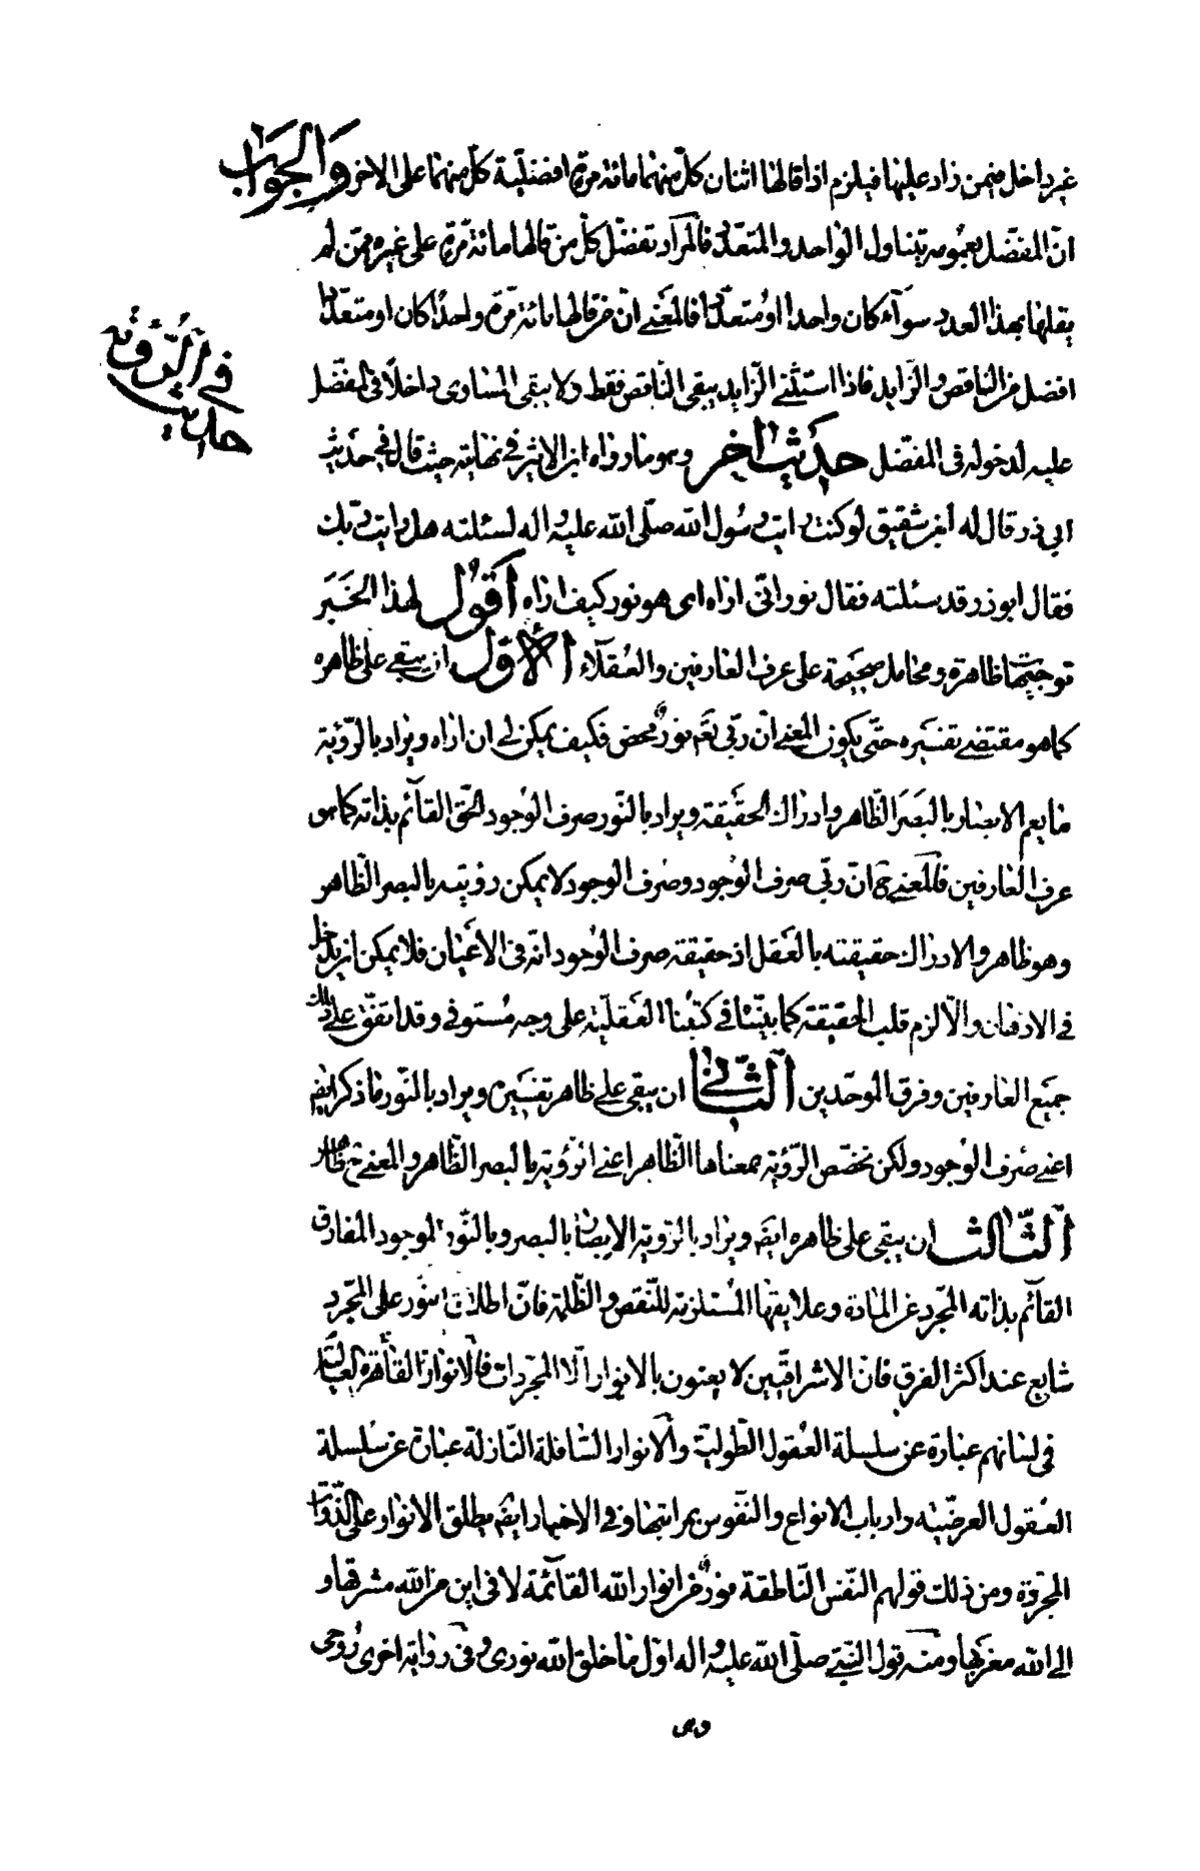 غير داخل فيمن زاد عليها فيلزم اذا قالها اثنان كلّ منهما مائة مرّة افضليّة كلّ منهما على الاخر والجواب
انّ المفضّل بعمومه يتناول الواحد والمتعدّد فالمراد تفضّل كلّ من قالها مائة مرّة على غيره ممّن لم
يقلها بهذا العدد سوآء كان واحدا او متعدّدا فالمعنى انّ من قالها مائة مرّة واحدًا كان او متعدّدا
افضل من الناقص والزّايد فاذا استثنى الزّايد يبقى النّاقص فقط ولا يبقى المساوى داخلًا فى المفضّل
عليه لدخوله فى المفضّل حديث اخر وهو ما رواه ابن الاثير فى نهايته حيث قال فى حديث
ابى ذر قال له ابن شقيق لو كنت رايت رسول الله صلّى الله عليه واله لسئلته هل رايت ربّك
فقال ابوذر قد سئلته فقال نور انّى اراه اى هو نور كيف اراه اقول لهذا الخبر
توجيهات ظاهرة ومحامل صحيحة على عرف العارفين والعقلآء الاوّل ان يبقى على ظاهره
كما هو مقتضى تفسيره حتّى يكون المعنى انّ ربّى تعم نورٌ محض فكيف يمكن لى ان اراه ويراد بالرّؤية
ما يعم الابصار بالبصر الظّاهر وادراك الحقيقة ويراد بالنّور صرف الوجود الحقّ القآئم بذاته كما هو
عرف العارفين فالمعنى ح انّ ربّى صرف الوجود وصرف الوجود لا يمكن رؤيته بالبصر الظّاهر
وهو ظاهر ولا ادراك حقيقته بالعقل اذ حقيقة صرف الوجود انّه فى الاعيان فلا يمكن ان يدخل
فى الاذهان والّا لزم قلب الحقيقة كما بيّنّا فى كتبنا العقليّة على وجه مستوفى وقد اتفق على ذلك
جميع العارفين وفرق الموحّدين الثّانى ان يبقى على ظاهر تفسيره ويراد بالنّور ما ذكر ايضا
اعنى صرف الوجود ولكن تخصّص الرّؤية بمعناها الظّاهر اعنى الرّؤية بالبصر الظّاهر والمعنى ح ظاهر
الثّالث ان يبقى على ظاهره ايضا ويراد بالرّوية الابصار بالبصر وبالنّور الموجود المفارق
القآئم بذاته المجّرد عن المادة وعلايقها المستلزمة للنّقص والظّلمة فانّ اطلاق النور على المجّرد
شايع عند اكثر الفرق فانّ الاشراقيّين لا يعنون بالانوار الّا المجرّدات فالانوار القاهرة العالية
فى لسانهم عبارة عن سلسلة العقول الطّوليّة والانوار السّافلة النّازلة عبارة عن سلسلة
العقول العرضيّة وارباب الانواع والنّفوس بمراتبها وفى الاخبار ايضا يطلق الانوار على الذّوات
المجرّدة ومن ذلك قولهم النّفس النّاطقة نورٌ من انوار الله القآئمة لا فى اين من الله مشرقها و
الى الله مغربها ومنه قول النّبىّ صلّى الله عليه واله اوّل ما خلق الله نورى وفى رواية اخرى روحى
فى الرّؤية
حديث